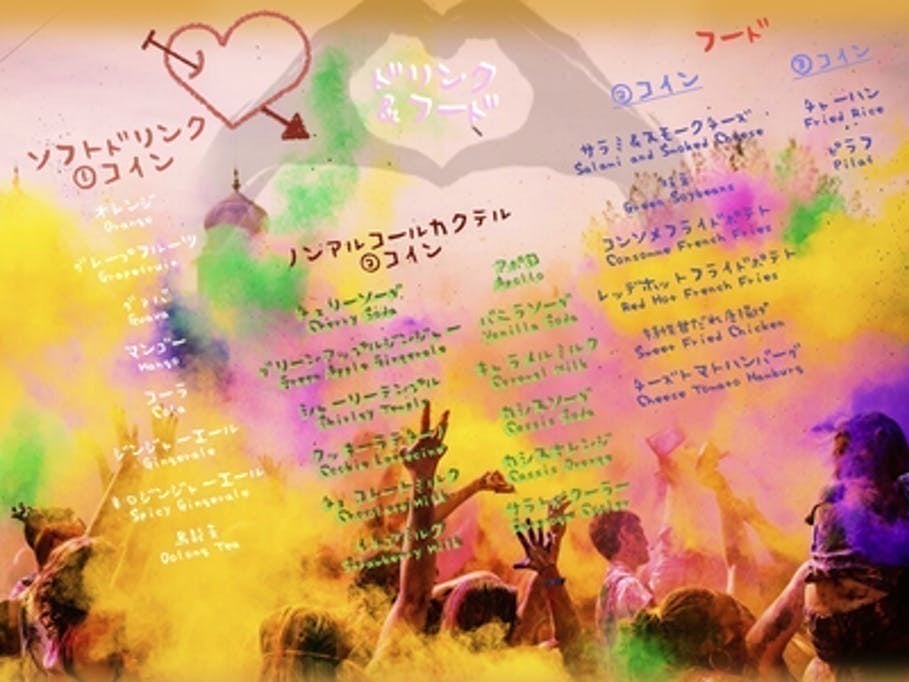 ドリンク
&フード
ソフトドリンク
①コイン
オレンジ
Orange
グレープフルーツ
Grapefruit
グァバ
Guava
マンゴー
Mango
コーラ
Cola
ジンジャーエール
Gingerale
辛口ジンジャーエール
Spicy Gingerale
烏龍茶
Oolong Tea
ノンアルコールカクテル
②コイン
チェリーソーダ
Cherry Soda
グリーンアップルジンジャー
Green Apple Gingerale
シャーリーテンプル
Shirley Temple
クッキーラテ
Cookie
チョコレートミルク
Chocolate Milk
ミルク
Strawberry Milk
アポロ
Apollo
バニラソーダ
Vanilla Soda
キャラメルミルク
Caramel Milk
カシスソーダ
Cassis Soda
カシスオレンジ
Cassis Orange
サラトガクーラー
Cooler
フード
②コイン
サラミ&スモークチーズ
Salami and Smoked Cheese
枝豆
Green Soybeans
コンソメフライドポテト
Consomme French Fries
レッドホットフライドポテト
Red Hot French Fries
特性甘だれ唐揚げ
Sweet Fried Chicken
チーズトマトハンバーグ
Cheese Tomato Hamburg
③コイン
チャーハン
Fried Rice
ピラフ
Pilaf